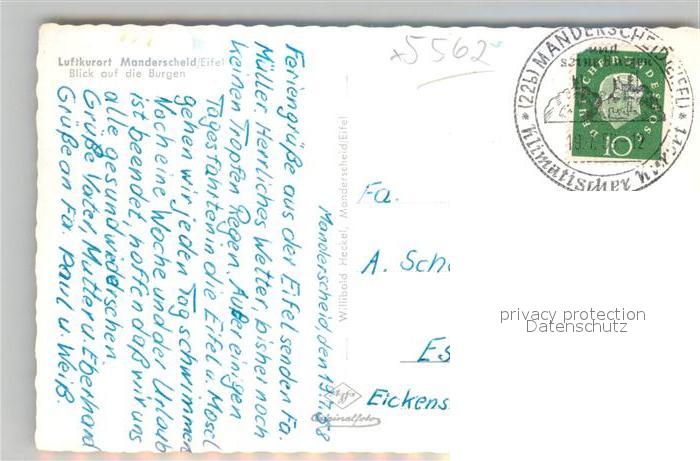 Luftkurort Manderscheid/Eifel
Blick auf die Burgen
x5562
Manderscheid, den 19.7.
Feriengrüße aus der Eifel senden Fa.
Müller. Herrliches Wetter, bisher noch
keinen Tropfen Regen. Außer einigen
Tagesfahrten in die Eifel u. Mosel
gehen wir jeden Tag schwimmen
Noch eine Woche und der Urlaub
ist beendet, hoffen daß wir uns
alle gesund wiedersehen
Grüße Vater, Mutter u. Eberhard
Grüße an Fa. Paul u. Weiß.
Willibold Heckel, Manderscheid/Eifel
Agfa
Originalfoto
(22b) MANDERSCHEID (EIFEL)
und
Klimatischer
DEUTSCHE BUNDESPOST
10
Fa.
A. Sch
Es
Eickens
privacy protection
Datenschutz